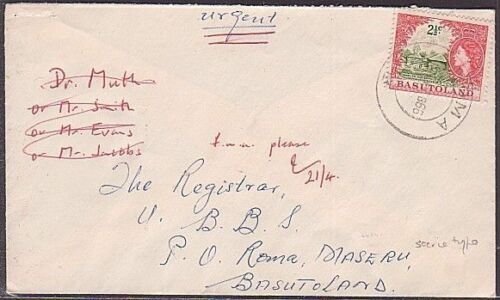 urgent
2½c
BASUTOLAND
MA
Dr. Muth
or Mr. Smith
or Mr. Evans
or Mr. Jacobs
please
21/4.
The Registrar,
U. B. B. S.
P. O. Roma, MASERU,
BASUTOLAND.
scarce type